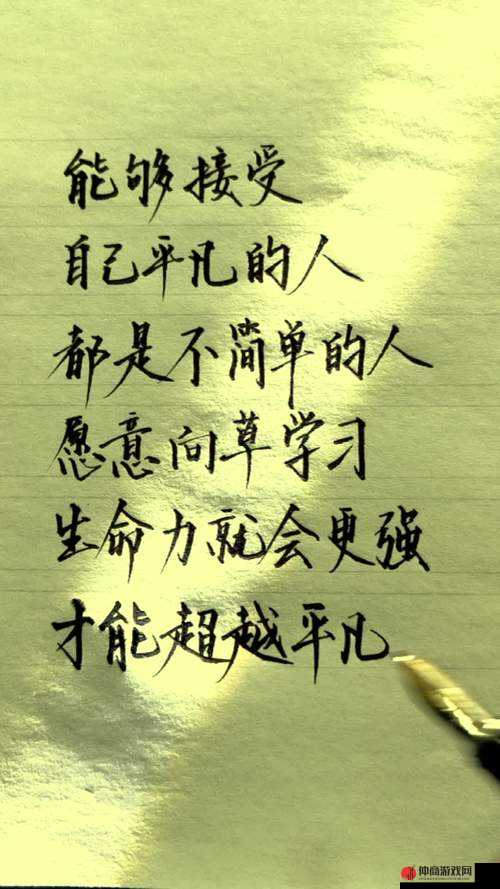 能够接受
自己平凡的人
都是不简单的人
愿意向草学习
生命力就会更强
才能超越平凡
仲商游戏网